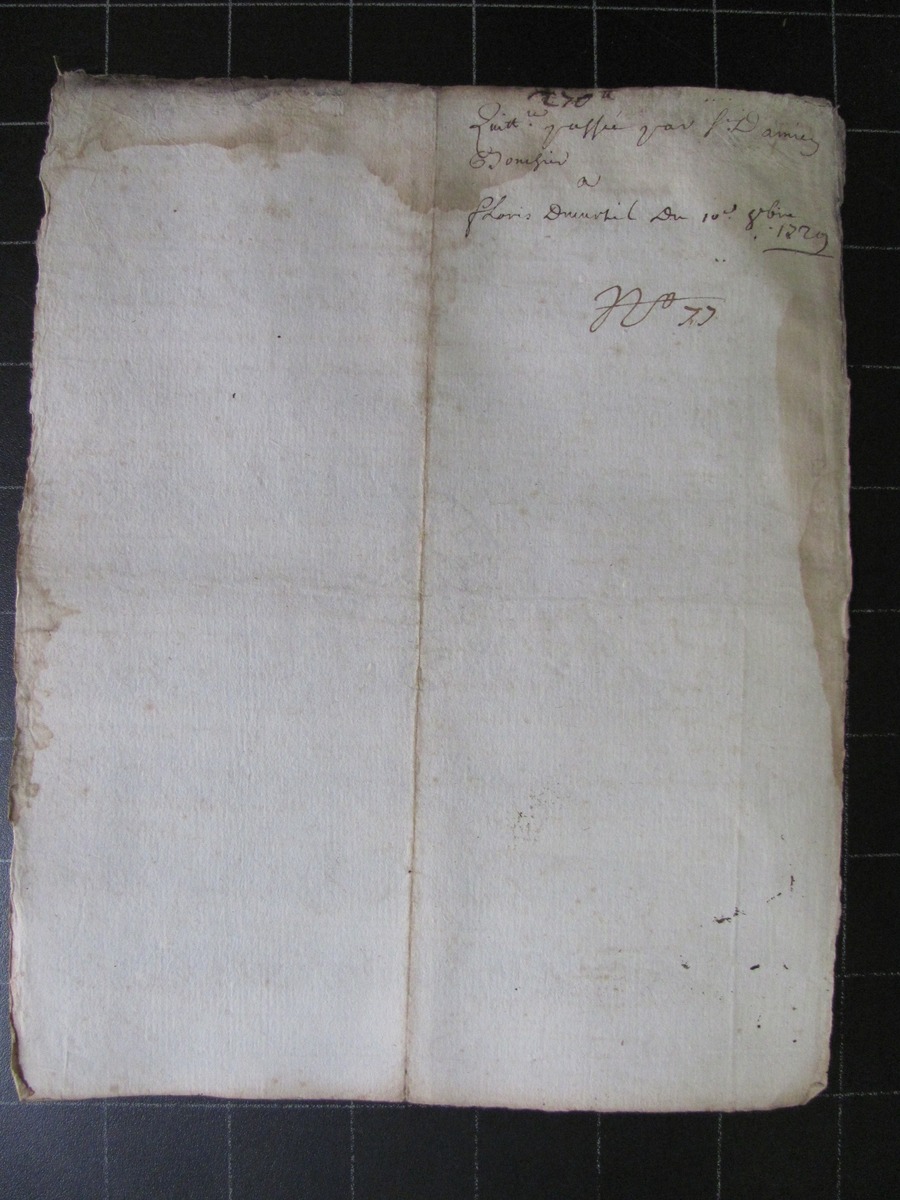 270 ₶
Quitt.ce passée par Sr. Damien
Bouchier
a
Floris Dumesnil Du 10e. 8bre
1729
No 77